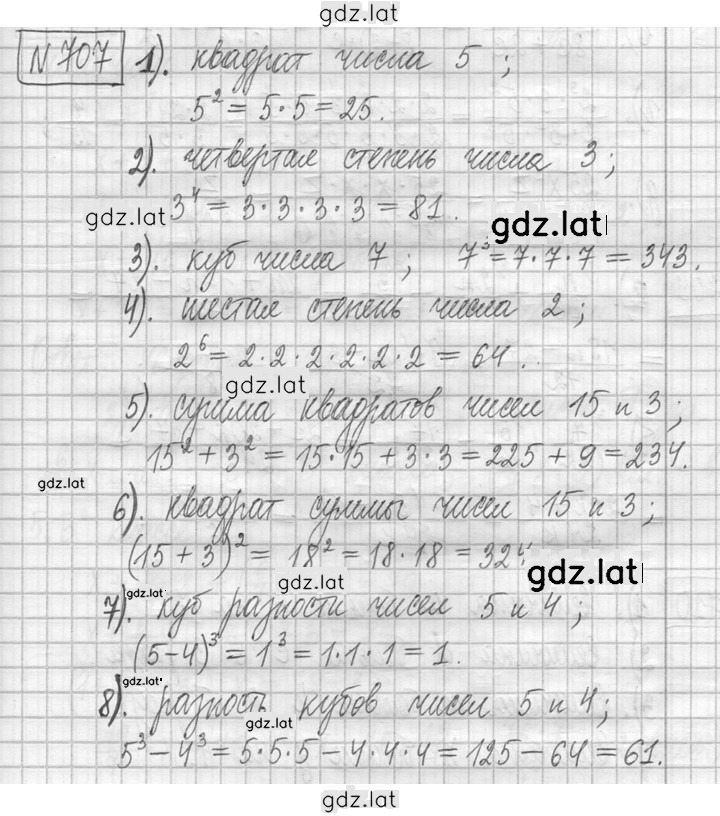 gdz.lat
N 707 1). квадрат числа 5 ;
5² = 5·5 = 25.
2). четвертая степень числа 3 ;
gdz.lat 3⁴ = 3·3·3·3 = 81. gdz.lat
3). куб числа 7 ; 7³ = 7·7·7 = 343.
4). шестая степень числа 2 ;
2⁶ = 2·2·2·2·2·2 = 64.
gdz.lat
5). сумма квадратов чисел 15 и 3 ;
15² + 3² = 15·15 + 3·3 = 225 + 9 = 234.
gdz.lat
6). квадрат суммы чисел 15 и 3 ;
(15 + 3)² = 18² = 18·18 = 324.
gdz.lat gdz.lat gdz.lat
7). куб разности чисел 5 и 4 ;
(5-4)³ = 1³ = 1·1·1 = 1.
gdz.lat
8). разность кубов чисел 5 и 4 ;
gdz.lat
5³ - 4³ = 5·5·5 - 4·4·4 = 125 - 64 = 61.
gdz.lat